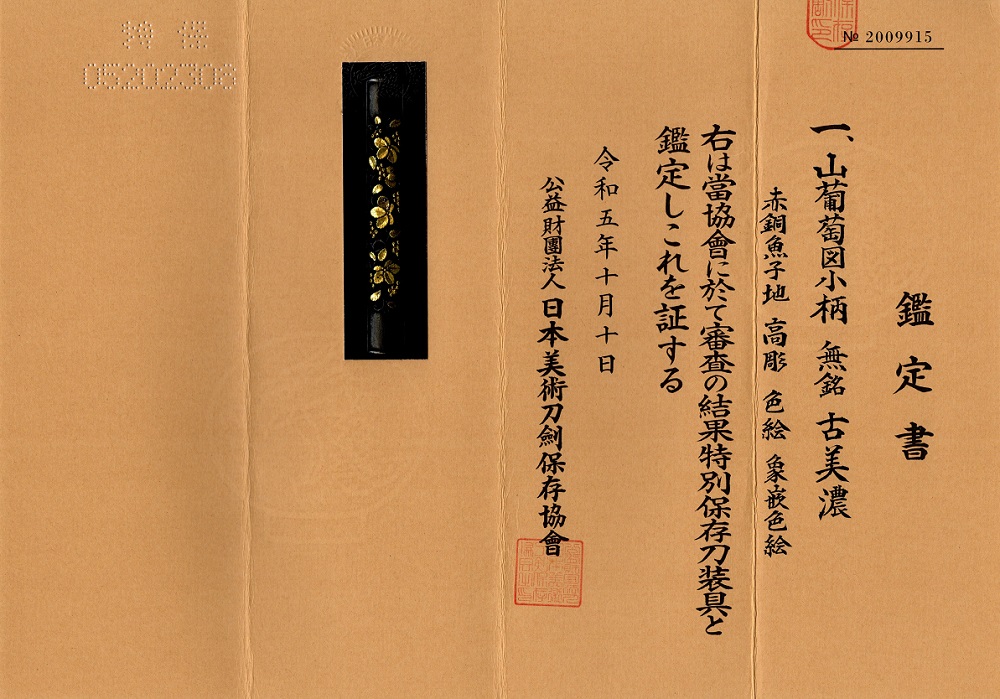 № 2009915
鑑定書
一、山葡萄図小柄 無銘 古美濃
赤銅魚子地 高彫 色絵 象嵌色絵
右は當協會に於て審査の結果特別保存刀装具と
鑑定しこれを証する
令和五年十月十日
公益財團法人 日本美術刀劍保存協會
05202308